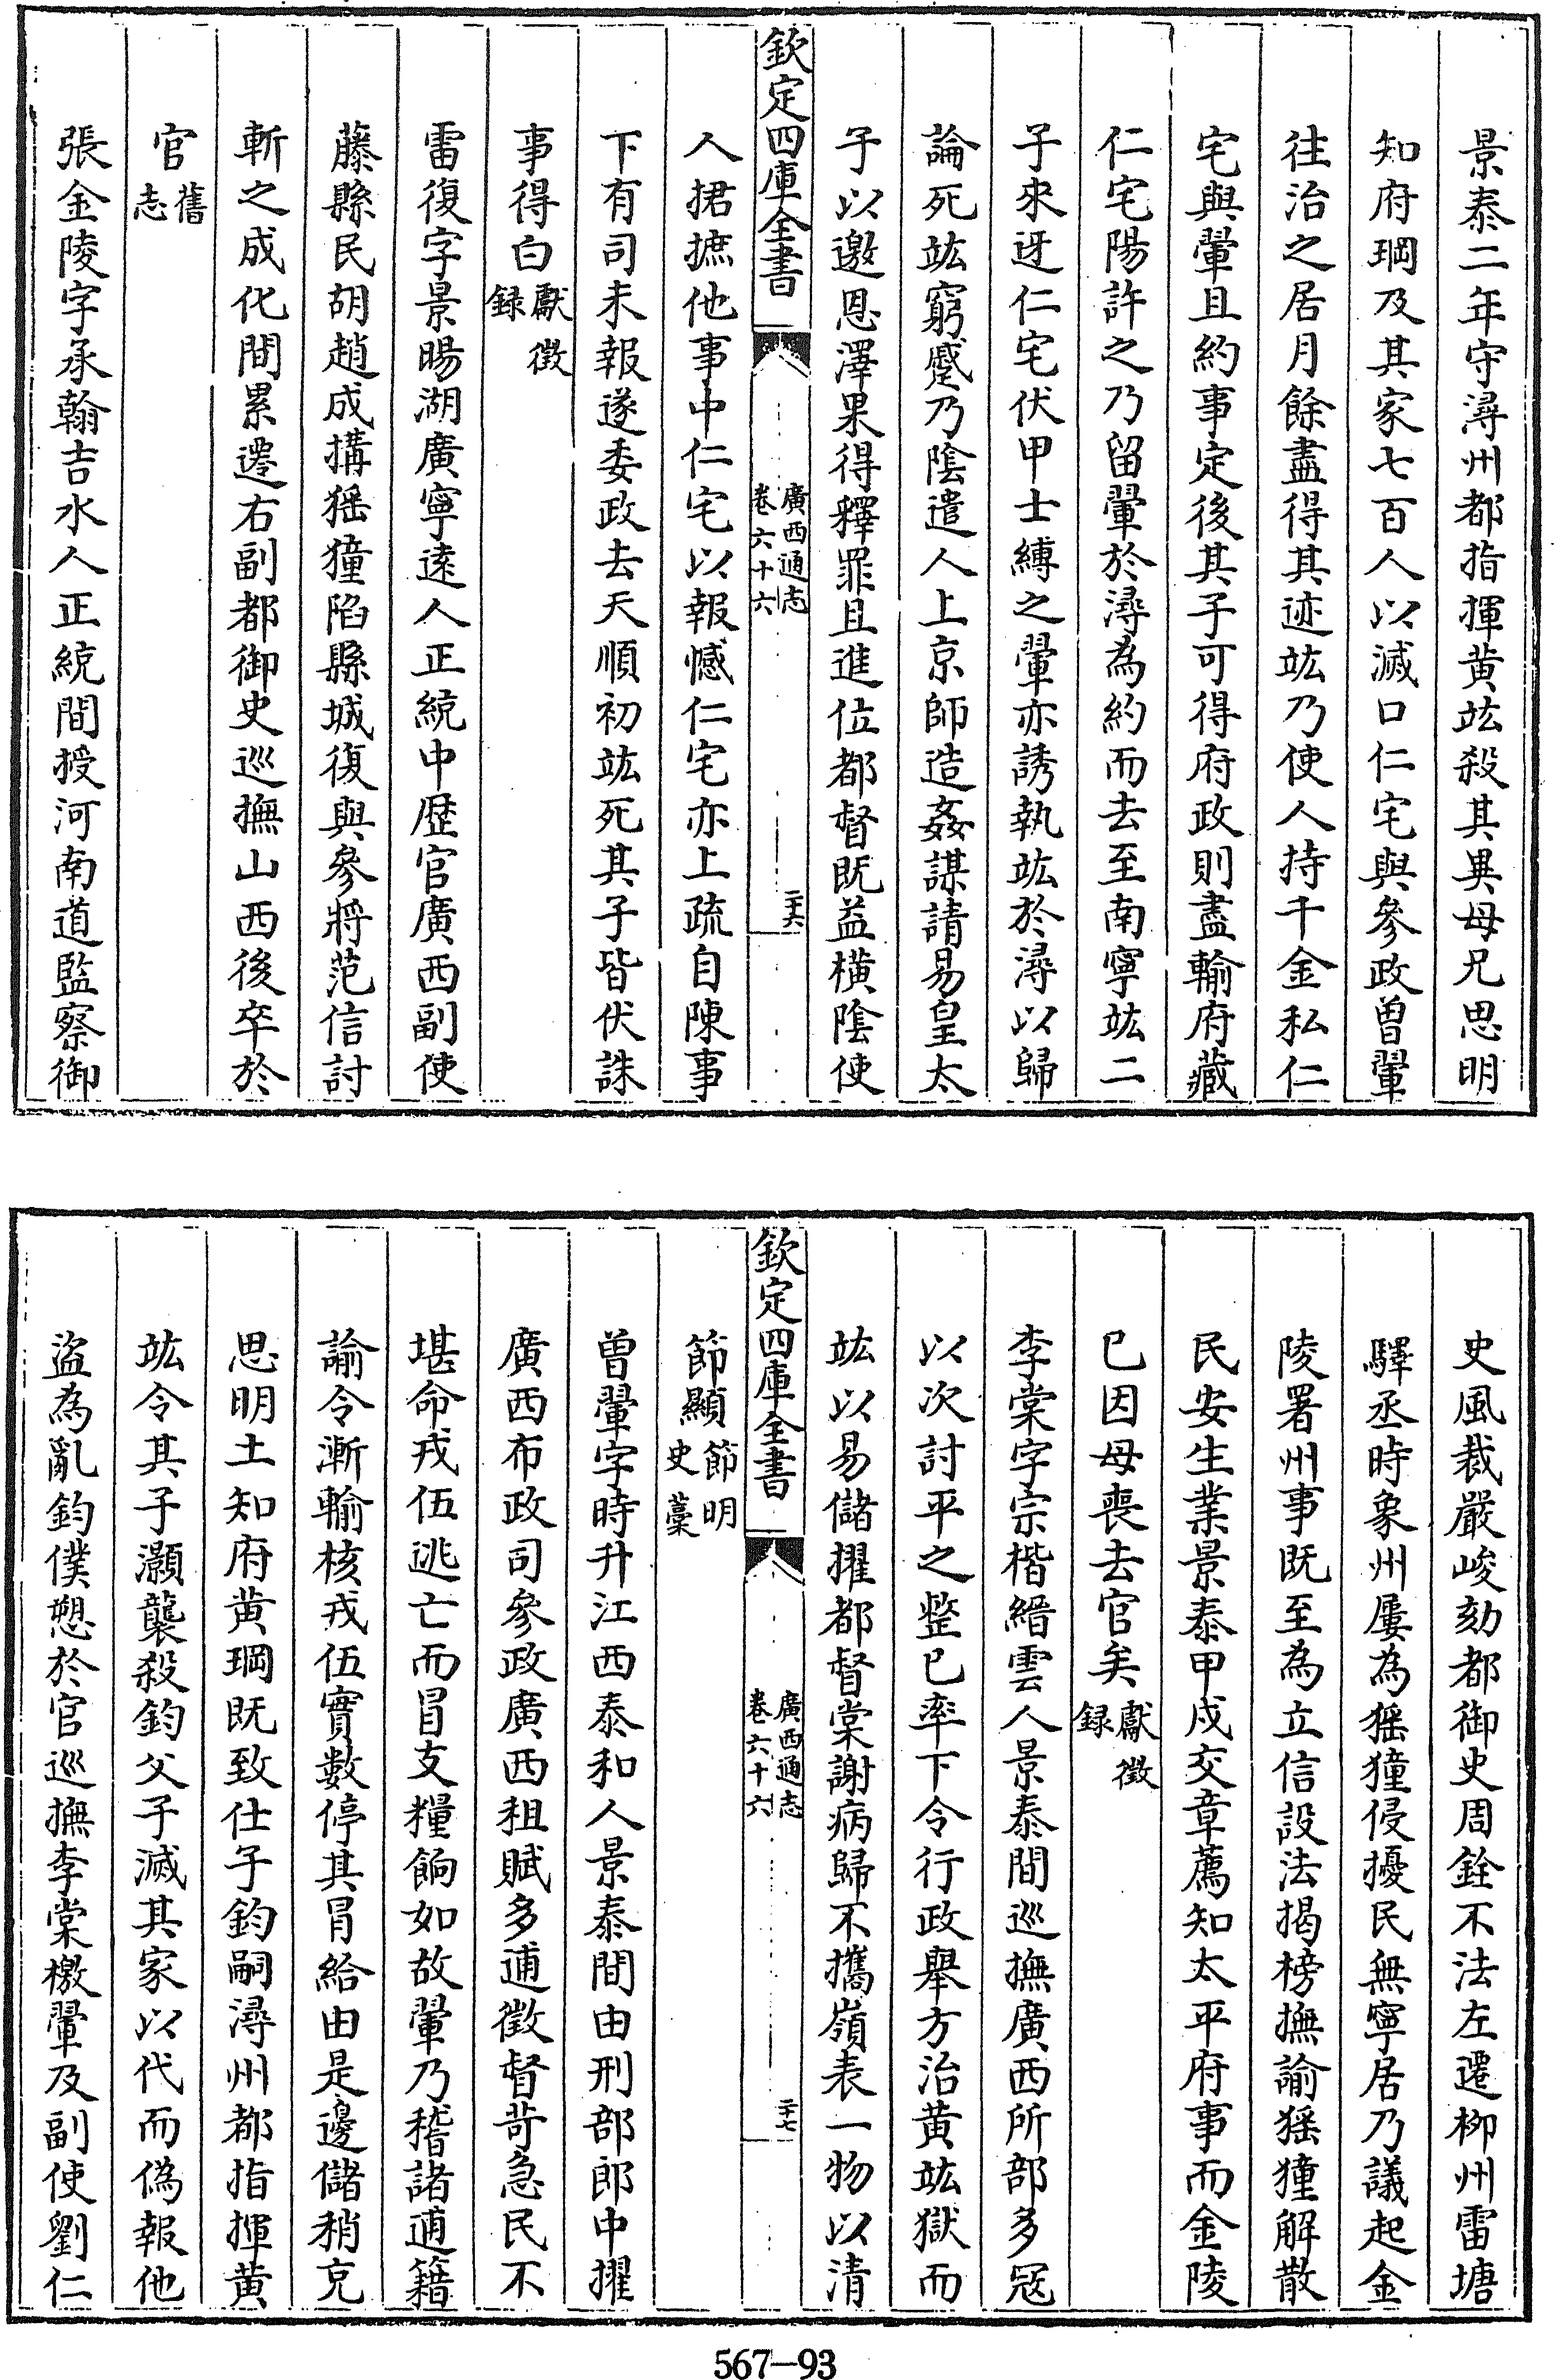 景泰二年守潯州都指揮黄竑殺其異母兄思明
知府㻶及其家七百人以滅口仁宅與參政曽翬
往治之居月餘盡得其迹竑乃使人持千金私仁
宅與翬且約事定後其子可得府政則盡輸府藏
仁宅陽許之乃留翬於潯為約而去至南寧竑二
子來迓仁宅伏甲士縛之翬亦誘執竑於潯以歸
論死竑窮蹙乃陰遣人上京師造姦謀請易皇太
子以邀恩澤果得釋罪且進位都督既益横陰使
欽定四庫全書
廣西通志
卷六十六
二十六
人捃摭他事中仁宅以報憾仁宅亦上疏自陳事
下有司未報遂委政去天順初竑死其子皆伏誅
事得白獻徵
録
雷復字景暘湖廣寧逺人正統中歴官廣西副使
藤縣民胡趙成搆猺獞陷縣城復與參將范信討
斬之成化間累遷右副都御史巡撫山西後卒於
官舊
志
張金陵字承翰吉水人正統間授河南道監察御
史風裁嚴峻劾都御史周銓不法左遷柳州雷塘
驛丞時象州屢為猺獞侵擾民無寧居乃議起金
陵署州事既至為立信設法揭榜撫諭猺獞解散
民安生業景泰甲戍交章薦知太平府事而金陵
已因母喪去官矣獻徵
録
李棠字宗楷縉雲人景泰間巡撫廣西所部多冦
以次討平之整已率下令行政舉方治黄竑獄而
竑以易儲擢都督棠謝病歸不攜嶺表一物以清
欽定四庫全書
廣西通志
卷六十六
二十七
節顯節明
史藁
曽翬字時升江西泰和人景泰間由刑部郎中擢
廣西布政司參政廣西租賦多逋徵督苛急民不
堪命戎伍逃亡而冒支糧餉如故翬乃稽諸逋籍
諭令漸輸核戎伍實數停其冒給由是邊儲稍充
思明土知府黄㻶既致仕子鈞嗣潯州都指揮黄
竑令其子灝襲殺鈞父子滅其家以代而偽報他
盜為亂鈞僕愬於官巡撫李棠檄翬及副使劉仁
567—93